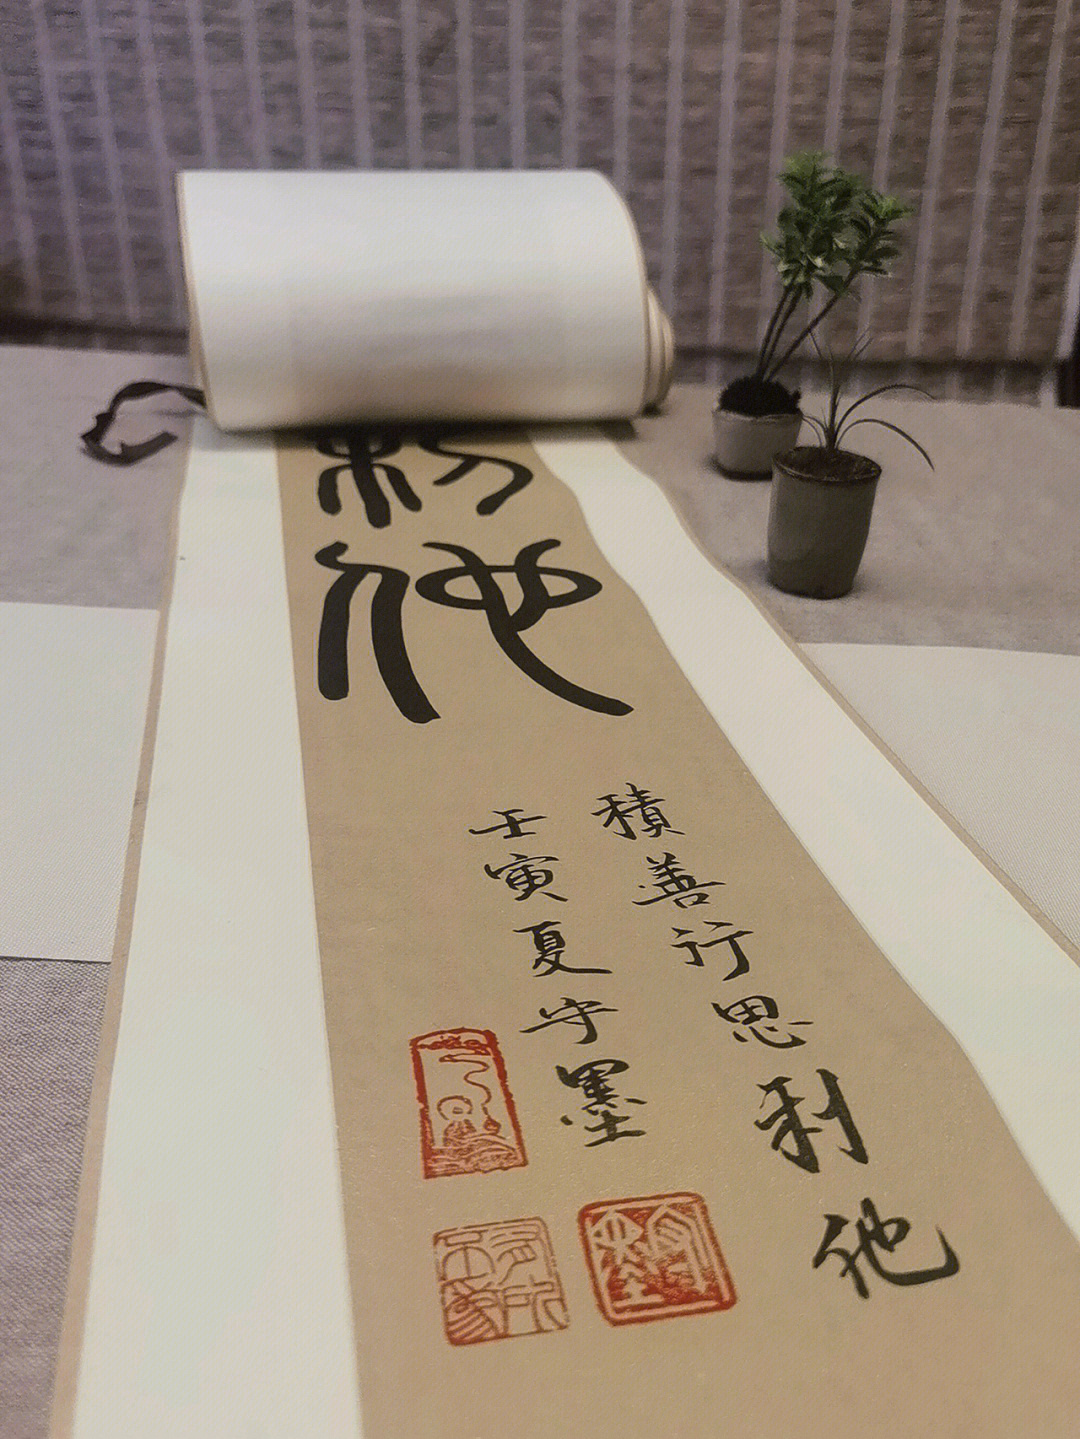 利他
積善行思利他
壬寅夏守墨